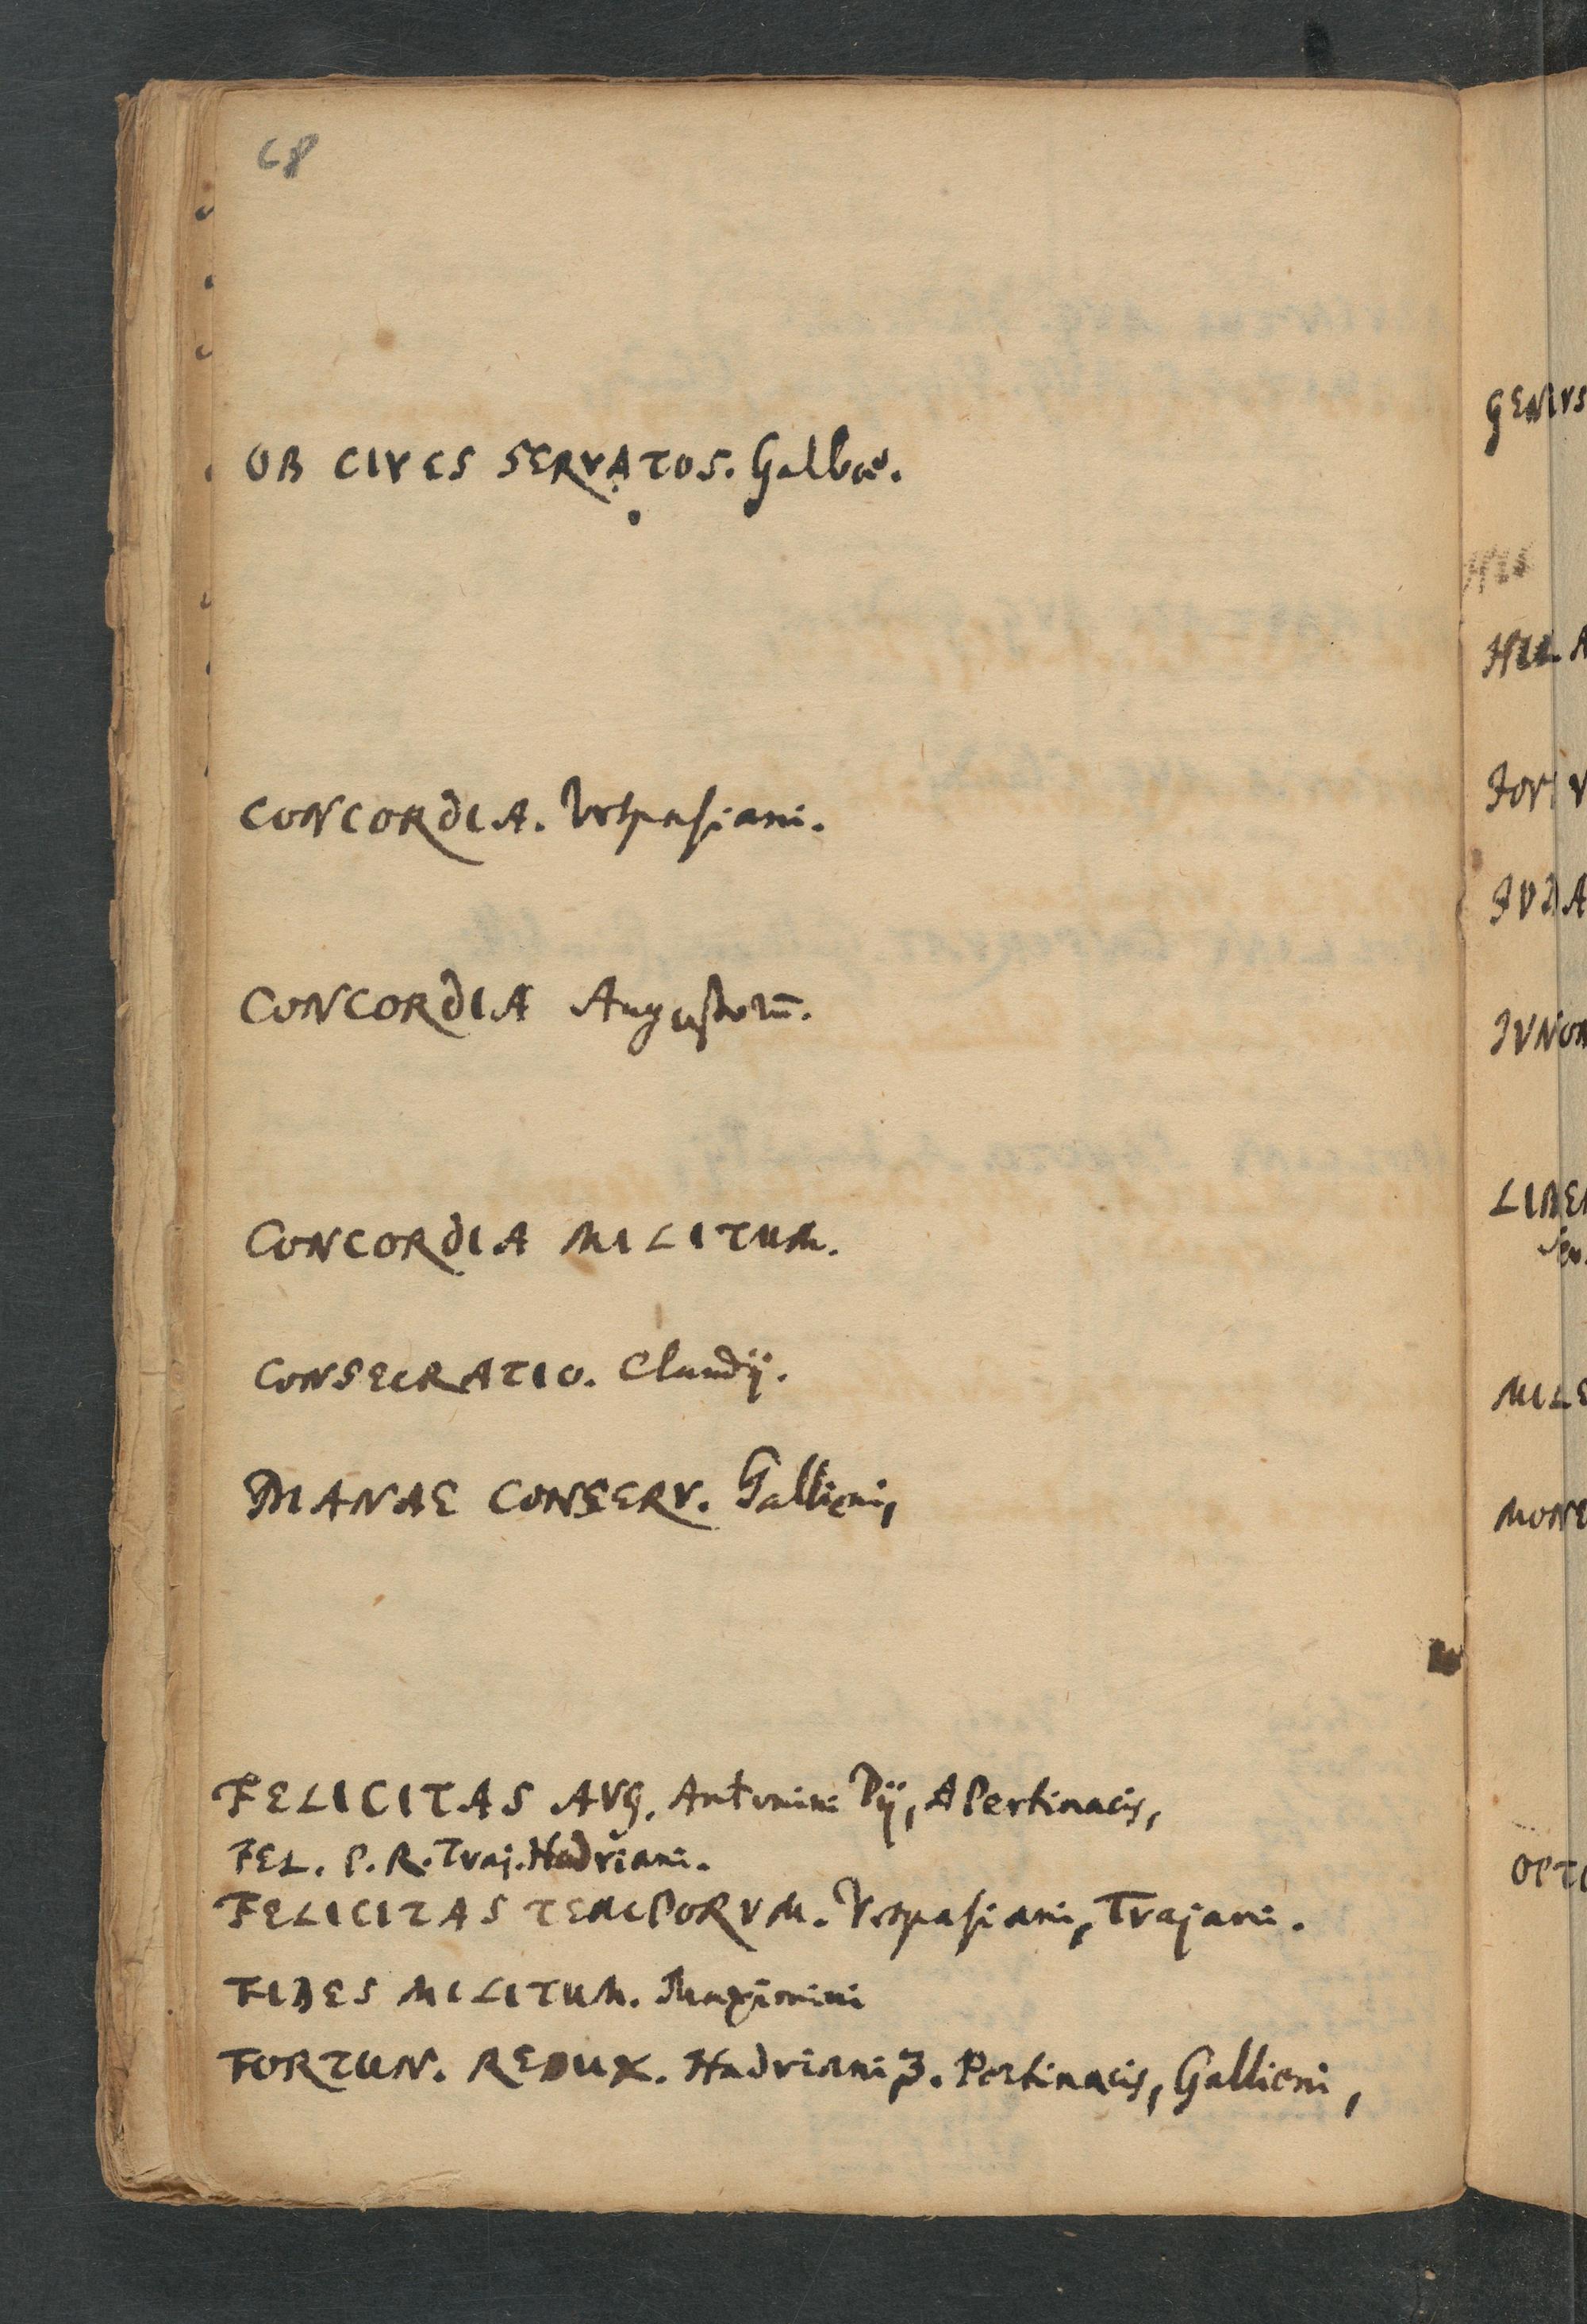 68
OB CIVES SERVATOS. Galbæ.
CONCORDIA. Vespasiani.
CONCORDIA Augustorū.
CONCORDIA MILITUM.
CONSECRATIO. Claudij.
DIANAE CONSERV. Gallieni,
FELICITAS AVG. Antonini Pij, A Pertinacis,
FEL. P. R. Traj. Hadriani.
FELICITAS TEMPORVM. Vespasiani, Trajani.
FIDES MILITUM. Maximini
FORTUN. REDUX. Hadriani 3. Pertinacis, Gallieni,
GENIVS
HIL
HILA
FORV
JUDA
JVNON
LIBE
MILE
MONE
OPTI